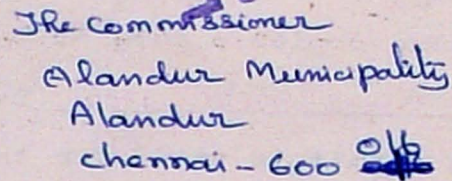 The Commissioner
Alandur Municipality
Alandur
Chennai - 600 016